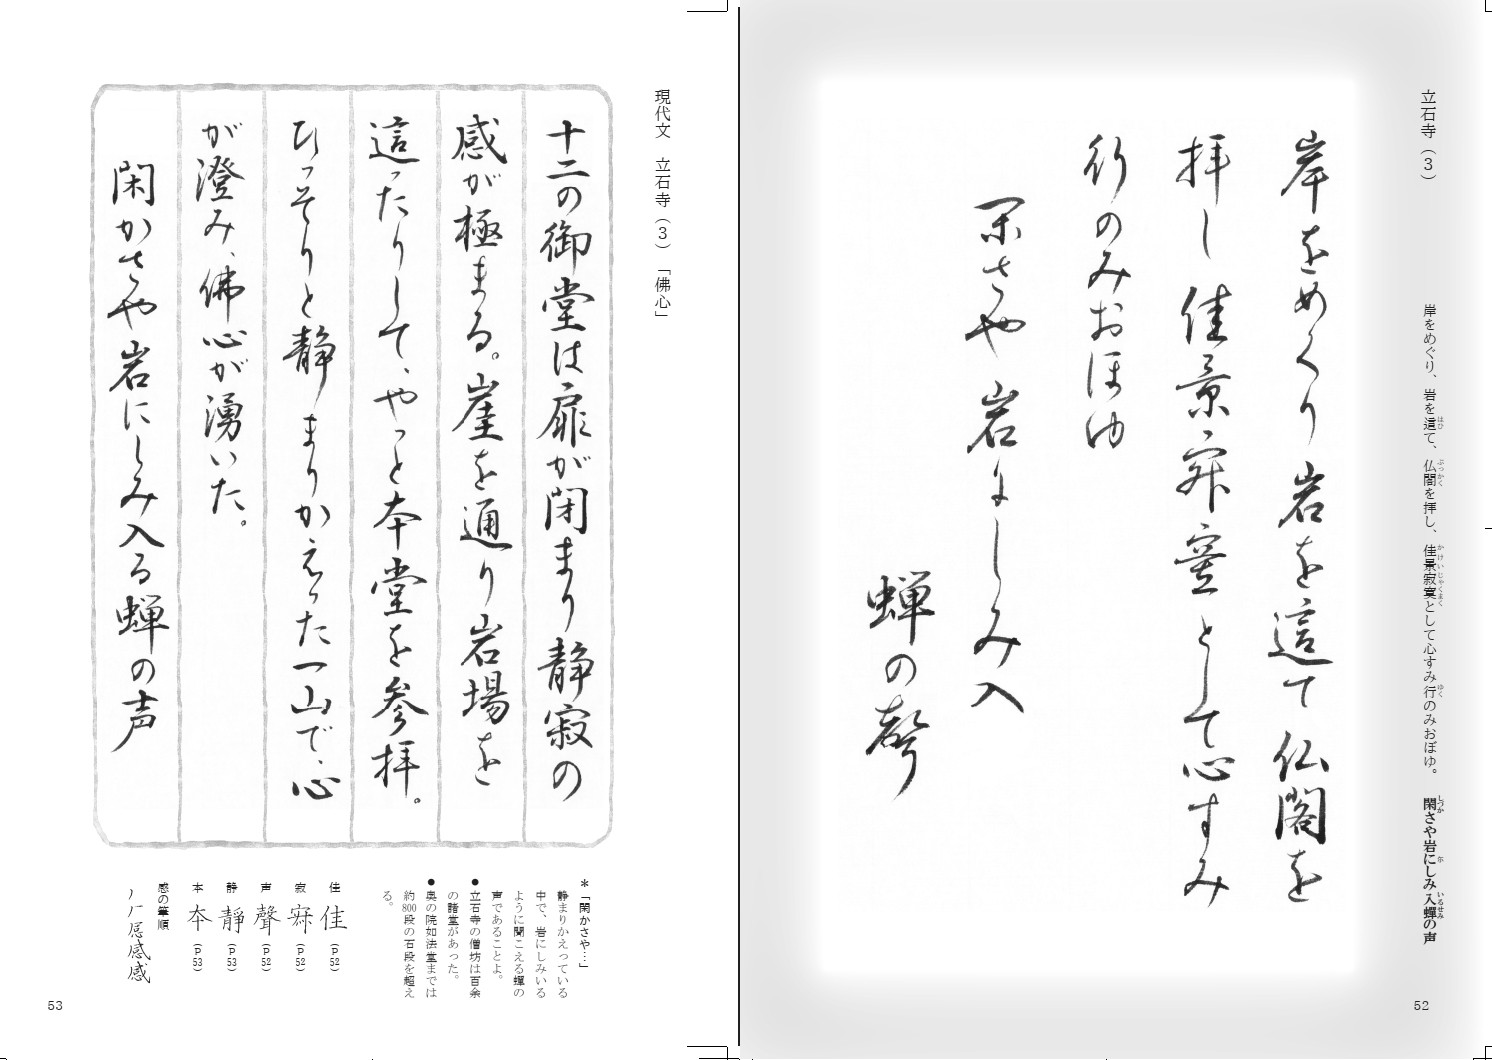 立石寺（3）
岸をめぐり、岩を這て、仏閣を拝し、佳景寂寞として心すみ行のみおぼゆ。　閑さや岩にしみ入蟬の声
はひ
ぶっかく
かけいじゃくまく
ゆく
しづか
尓
いるせみ
岸をめくり岩を這て仏閣を
拝し佳景寂寞として心すみ
行のみおほゆ
閑さや岩にしみ入
蝉の聲
52
現代文　立石寺（3）「佛心」
十二の御堂は扉が閉まり静寂の
感が極まる。崖を通り岩場を
這ったりして、やっと本堂を参拝。
ひっそりと静まりかえった一山で、心
が澄み、佛心が湧いた。
閑かさや岩にしみ入る蝉の声
＊「閑かさや…」
静まりかえっている
中で、岩にしみいる
ように聞こえる蟬の
声であることよ。
●立石寺の僧坊は百余
の諸堂があった。
●奥の院如法堂までは
約800段の石段を超え
る。
佳 佳（p52）
寂 寂（p52）
声 聲（p52）
静 靜（p53）
本 本（p53）
感の筆順
感感
53